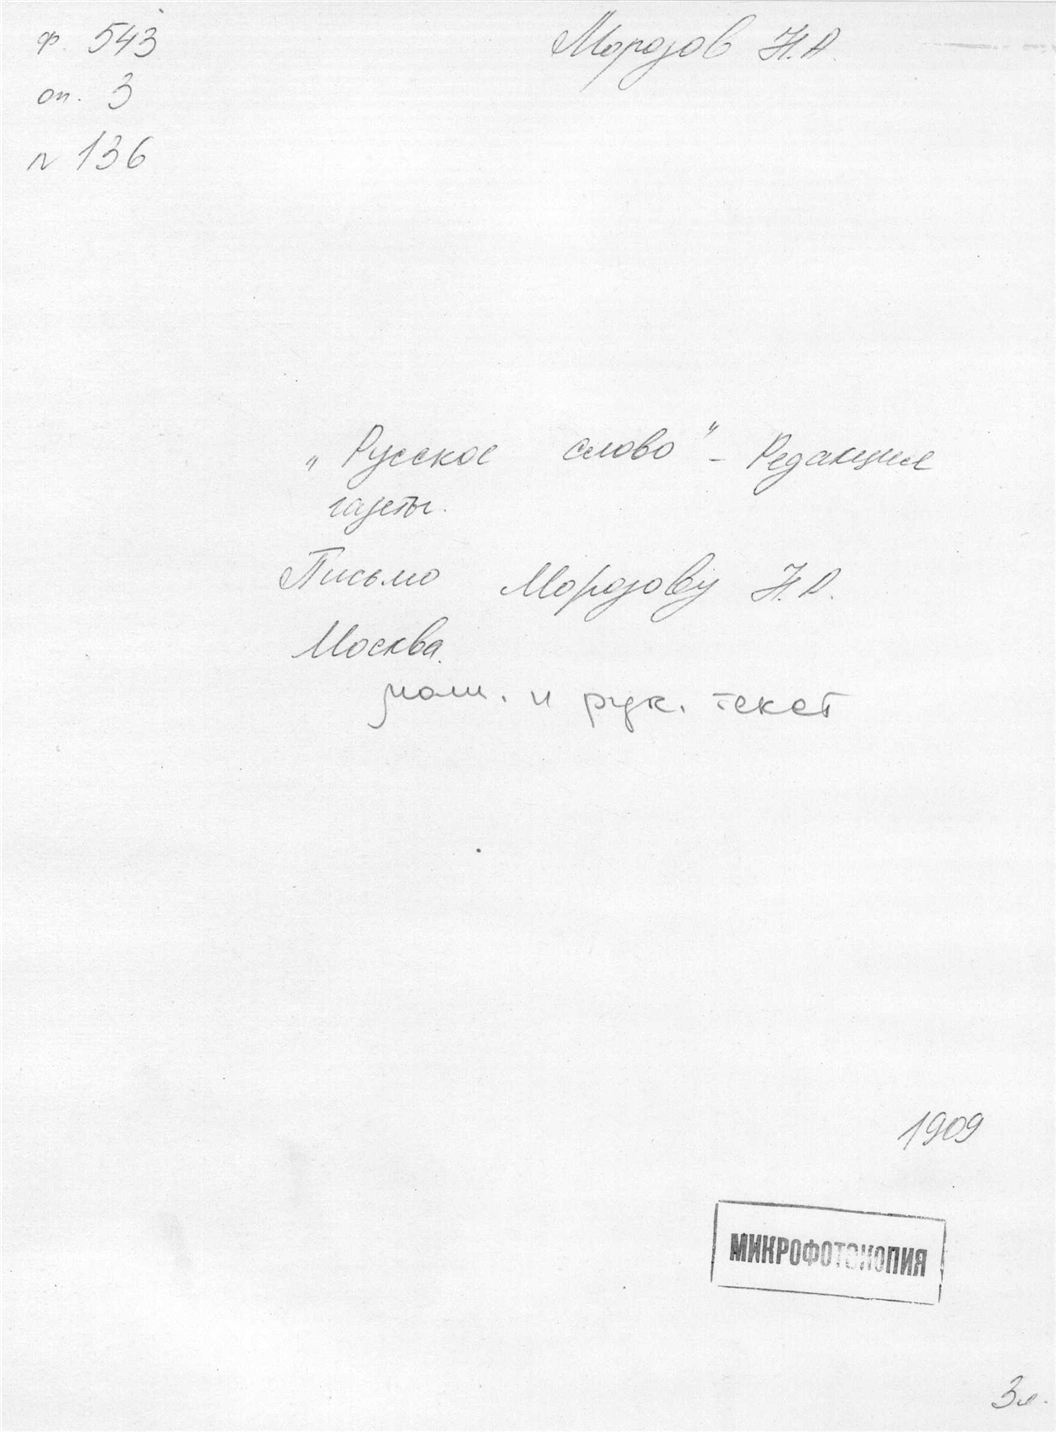 ф. 543
Морозов Н.А.
оп. 3
№ 136
„Русское слово" - Редакция
газеты.
Письмо Морозову Н.А.
Москва.
маш. и рук. текст
1909
МИКРОФОТОКОПИЯ
3 л.